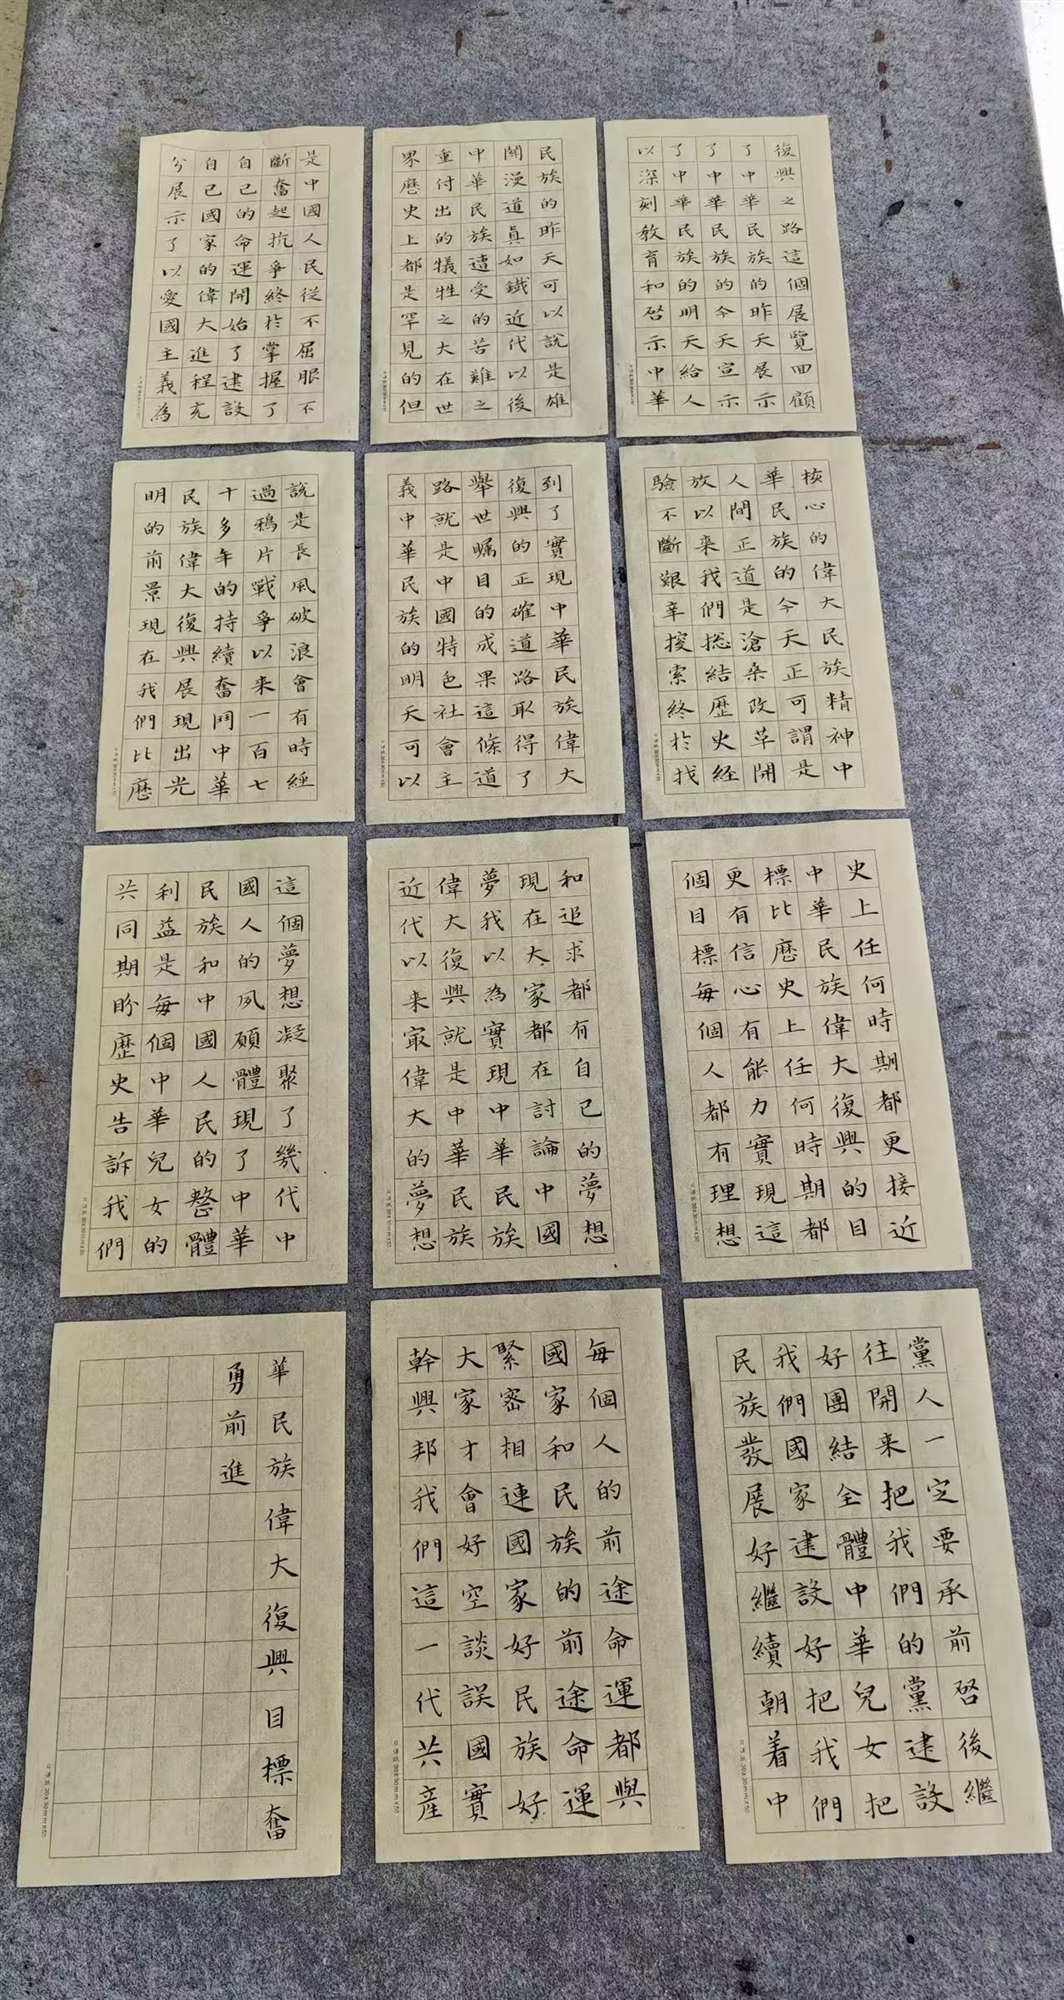 復興之路這個展覽回顧
了中華民族的昨天展示
了中華民族的今天宣示
了中華民族的明天給人
以深刻教育和啓示中華
民族的昨天可以說是雄
關漫道真如鐵近代以後
中華民族遭受的苦難之
重付出的犧牲之大在世
界歷史上都是罕見的但
是中國人民從不屈服不
斷奮起抗爭終於掌握了
自己的命運開始了建設
自己國家的偉大進程充
分展示了以愛國主義為
核心的偉大民族精神中
華民族的今天正可謂是
人間正道是滄桑改革開
放以来我們捴結歷史經
驗不斷艱辛探索終於找
到了實現中華民族偉大
復興的正確道路取得了
舉世矚目的成果這條道
路就是中國特色社會主
義中華民族的明天可以
說是長風破浪會有時經
過鴉片戰爭以来一百七
十多年的持續奮鬥中華
民族偉大復興展現出光
明的前景現在我們比歷
史上任何時期都更接近
中華民族偉大復興的目
標比歷史上任何時期都
更有信心有能力實現這
個目標每個人都有理想
和追求都有自己的夢想
現在大家都在討論中國
夢我以為實現中華民族
偉大復興就是中華民族
近代以来最偉大的夢想
這個夢想凝聚了幾代中
國人的夙願體現了中華
民族和中國人民的整體
利益是每個中華兒女的
共同期盼歷史告訴我們
每個人的前途命運都與
國家和民族的前途命運
緊密相連國家好民族好
大家才會好空談誤國實
幹興邦我們這一代共產
黨人一定要承前啓後繼
往開来把我們的黨建設
好團結全體中華兒女把
我們國家建設好把我們
民族發展好繼續朝着中
華民族偉大復興目標奮
勇前進